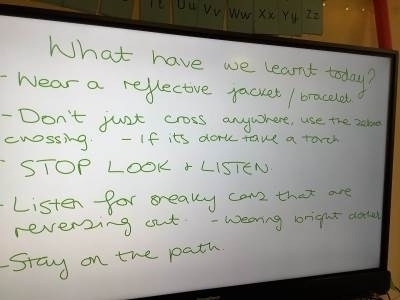 Tt Uu Vv Ww Xx Yy Zz
What have we learnt today?
- Wear a reflective jacket / bracelet.
- Don't just cross anywhere, use the zebra
crossing. - If its dark take a torch
- STOP LOOK + LISTEN.
- Listen for sneaky cars that are
reversing out. - Wearing bright clothes
- Stay on the path.